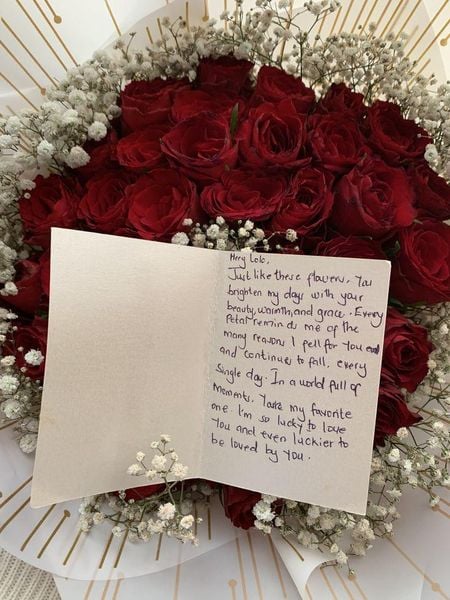 Hey Lolo,
Just like these flowers. You
brighten my days with your
beauty, warmth, and grace. Every
Petal reminds me of the
many reasons I fell for you
and continues to fall, every
Single day. In a world full of
Moments. You're my favorite
one. I'm so lucky to love
You and even luckier to
be loved by You.